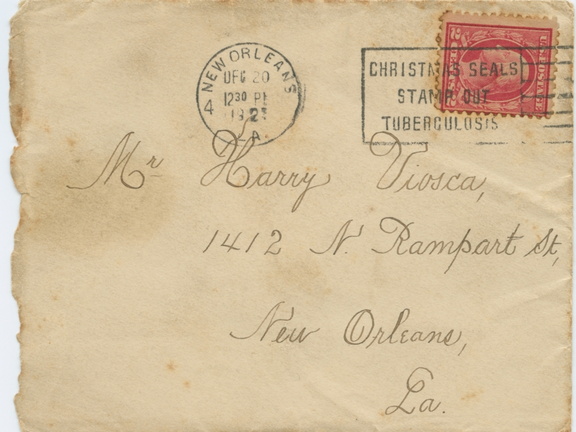 NEW ORLEANS
DEC 20
12 30 PM
4
LA.
CHRISTMAS SEALS
STAMP OUT
TUBERCULOSIS
Mr Harry Viosca,
1412 N. Rampart St,
New Orleans,
La.